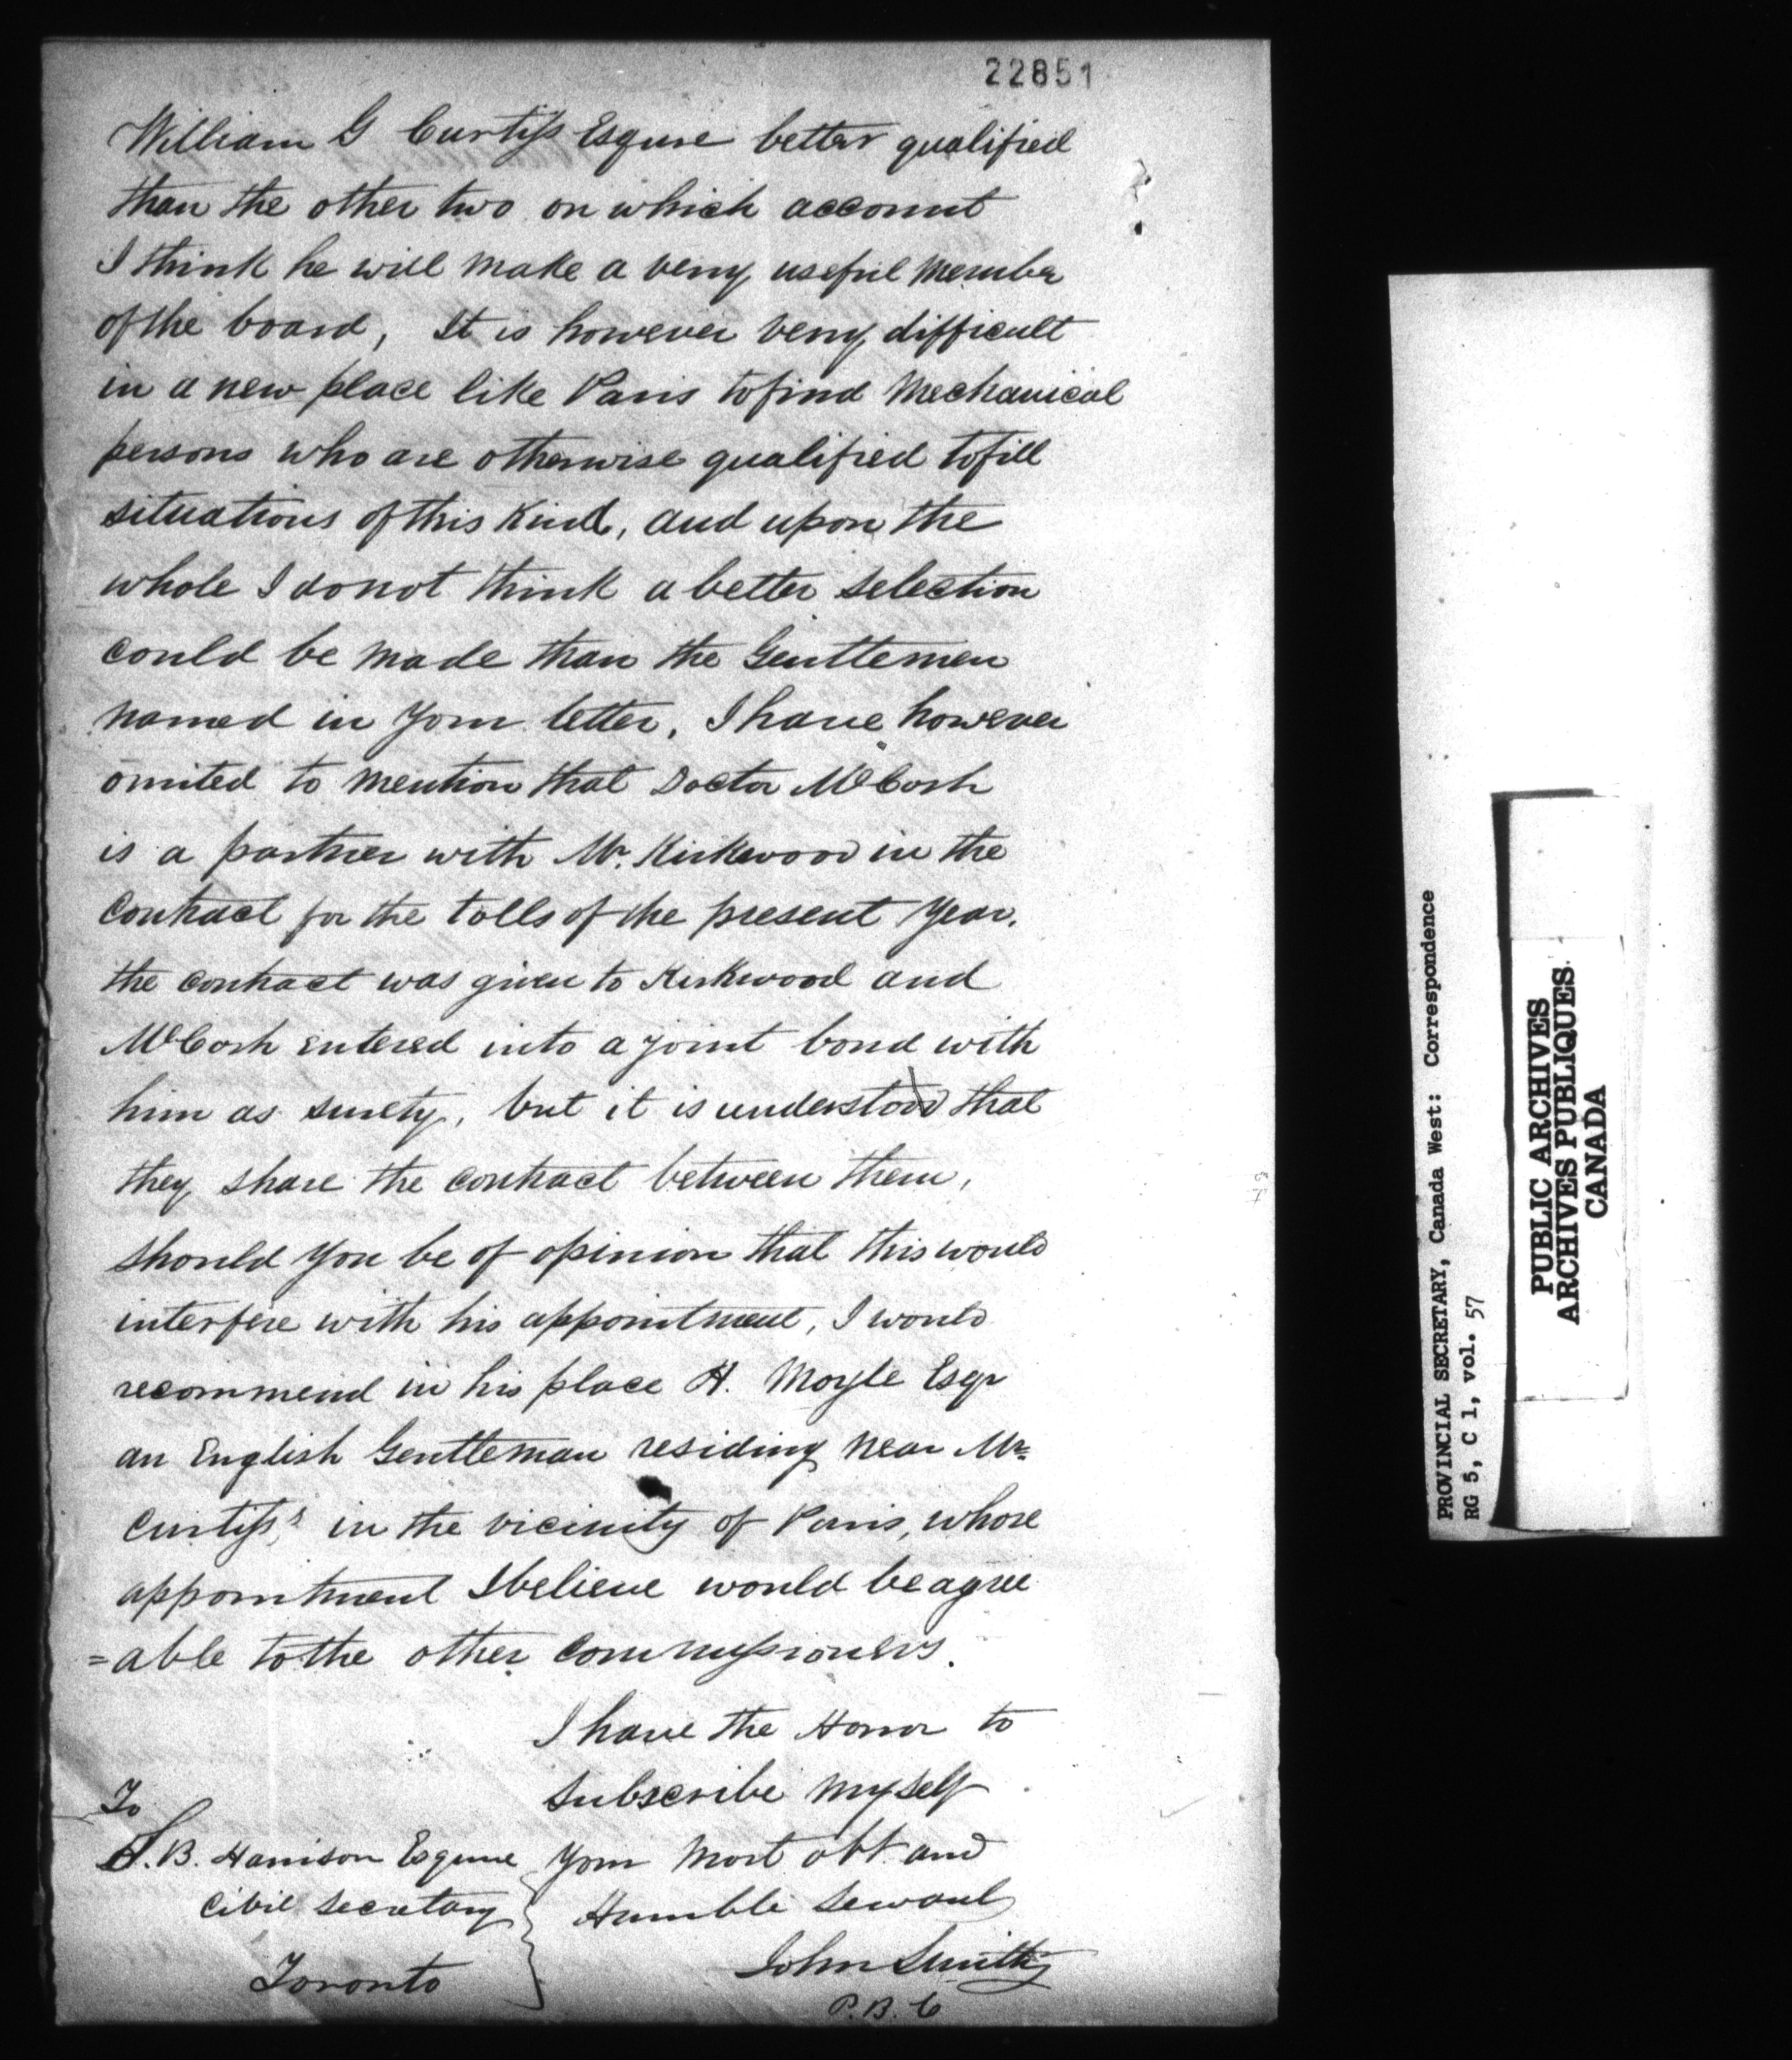 22851
William G Curtiss Esquire better qualified
than the other two on which account
I think he will make a very useful member
of the board, It is however very difficult
in a new place like Paris to find Mechanical
persons who are otherwise qualified to fill
situations of this kind, and upon the
whole I do not think a better selection
could be made than the Gentlemen
named in your letter, I have however
omited to mention that Doctor McCosh
is a partner with Mr. Kirkwood in the
Contract for the tolls of the present year.
the contract was given to Kirkwood and
McCosh entered into a joint bond with
him as surety, but it is understood that
they share the contract between them,
should you be of opinion that this would
interfere with his appointment, I would
recommend in his place H. Moyle Esqr
an English Gentleman residing near Mr
Curtiss's in the vicinity of Paris, whose
appointment I believe would be agree
=able to the other Commissioners.
I have the Honor to
subscribe myself
Your most obt and
Humble servant
John Smith
P.B.C
To
S.B. Harrison Esquire
Civil Secretary
Toronto
PROVINCIAL SECRETARY, Canada West: Correspondence
RG 5, C 1, vol. 57
PUBLIC ARCHIVES
ARCHIVES PUBLIQUES
CANADA